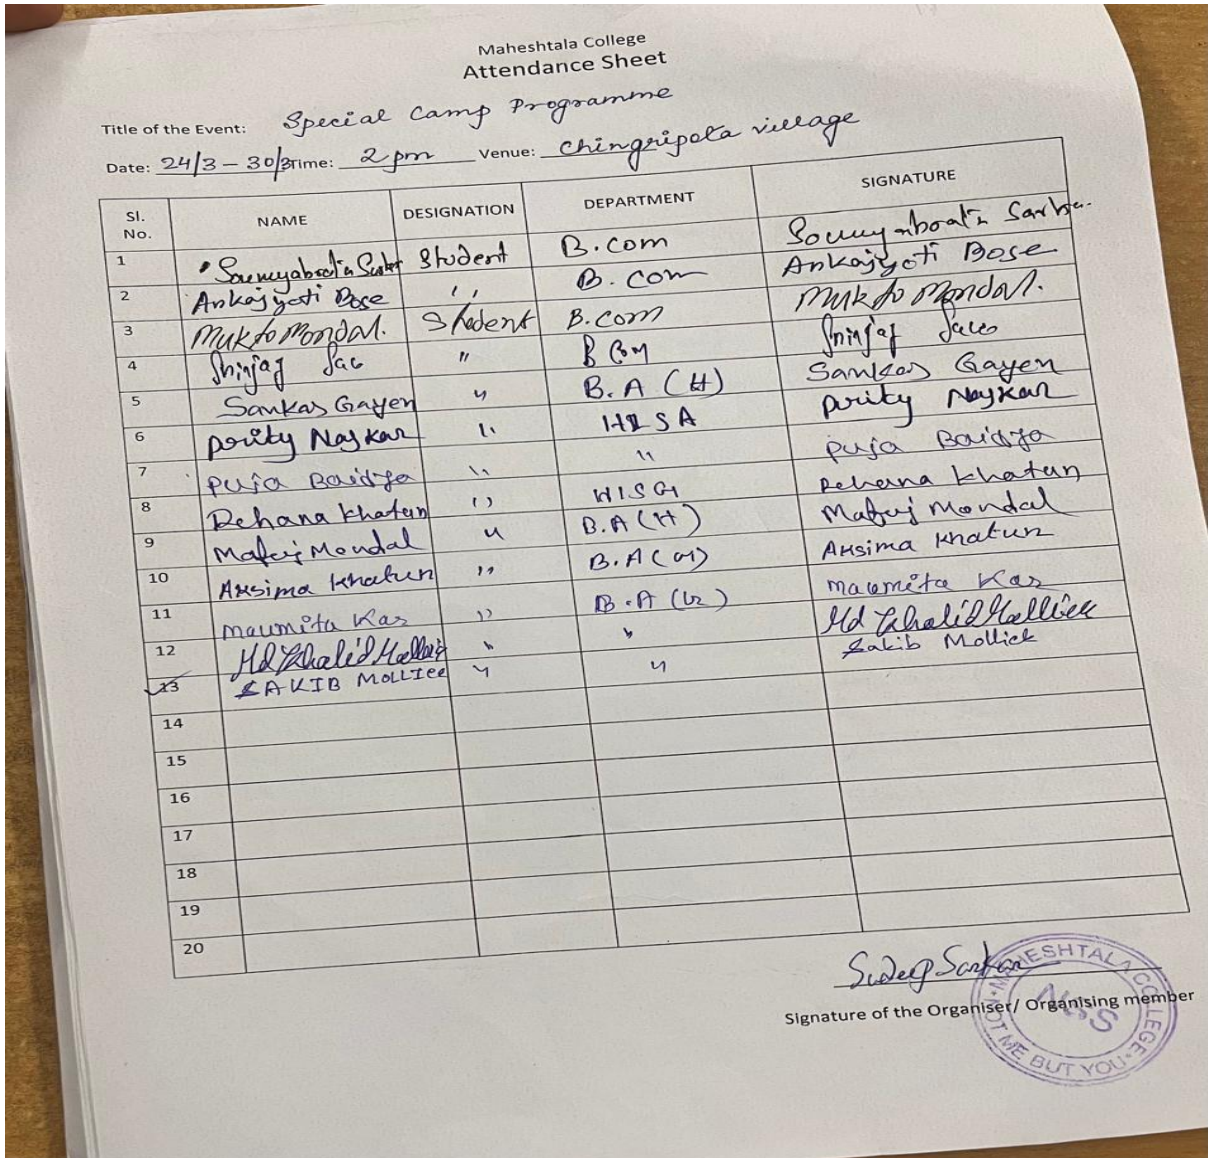 Maheshtala College
Attendance Sheet
Title of the Event: Special Camp Programme
Date: 24/3 – 30/3 Time: 2 pm Venue: Chingripota village
Sl. No. NAME DESIGNATION DEPARTMENT SIGNATURE
1 Student B.com
2 Ankajyoti Bose ,, B. com Ankajyoti Bose
3 Mukto Mondal. Student B.com Mukto Mondal.
4 " B Com
5 Sankas Gayen " B.A (H) Sankas Gayen
6 Prity Naskar " HISA Prity Naskar
7 Puja Baidya " " Puja Baidya
8 Rehana Khatun " HISG Rehana Khatun
9 Mafuj Mondal " B.A (H) Mafuj Mondal
10 Aksima Khatun " B.A (G) Aksima Khatun
11 Moumita Kar " B.A (G) Moumita Kar
12 Md Khalid Mollick " " Md Khalid Mollick
13 SAKIB MOLLICK " " Sakib Mollick
14
15
16
17
18
19
20
Sudeep Sarkar
Signature of the Organiser/ Organising member
MAHESHTALA COLLEGE
NSS
NOT ME BUT YOU